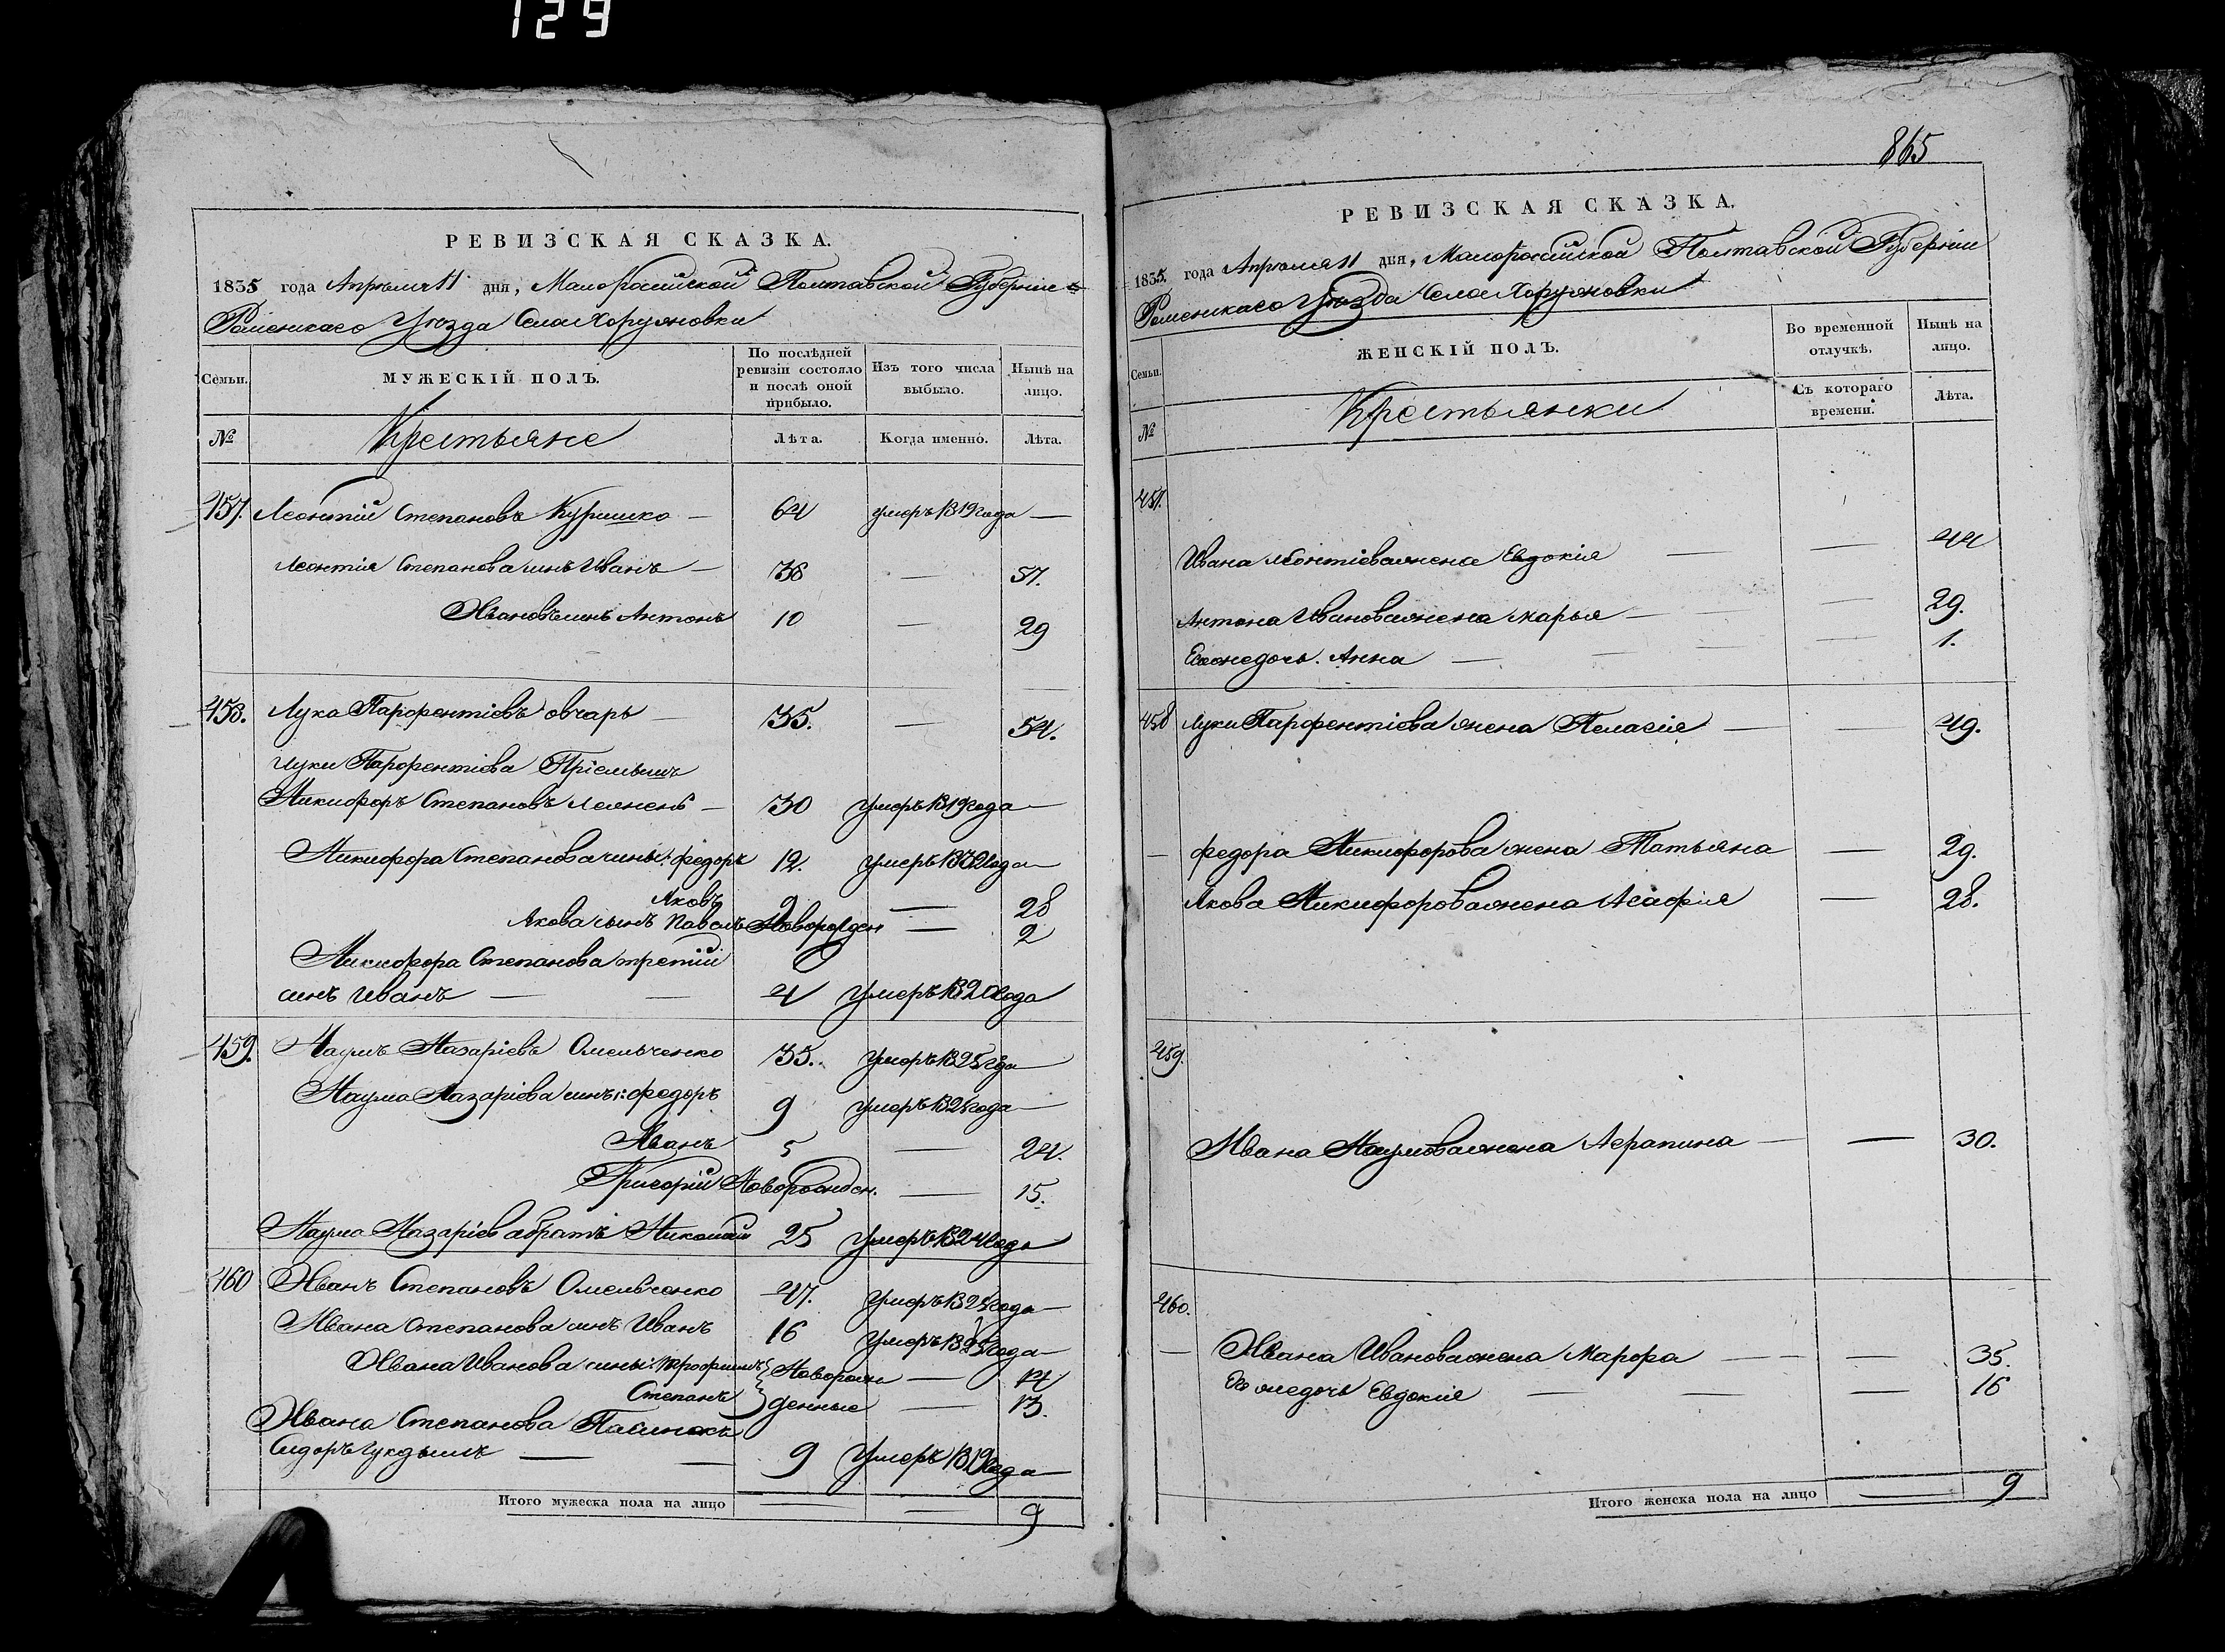 129
РЕВИЗСКАЯ СКАЗКА.
1835 года Апреля 11 дня, Малороссийской Полтавской Губернии
Роменскаго Уезда Села Хоружовки
Семьи.
МУЖЕСКІЙ ПОЛЪ.
По послѣдней ревизіи состояло и послѣ оной прибыло.
Изъ того числа выбыло.
Нынѣ на лицо.
№
Крестьяне
Лѣта.
Когда именно.
Лѣта.
457. Леонтій Степановъ 64 умеръ 1819 года —
Леонтія Степанова синъ Иванъ — 38 — 57.
Ивановъ синъ Антонъ 10 — 29
458. Лука Парфентіевъ овчаръ — 35. — 54.
Луки Парфентіева Пріемышъ
Никифоръ Степановъ — 30 умеръ 1819 года —
Никифора Степанова сины: Федоръ 12. умеръ года —
Яковъ 9 — 28
Якова сынъ Павелъ Новорожден — 2
Никифора Степанова третій
синъ Иванъ — — 4 умеръ 1820 года
459. Наумъ Назаріевъ Омельченко 35. умеръ 1825 года
Наума Назаріева синъ: Федоръ 9 умеръ года —
Иванъ 5 — 24.
Григорій Новорожден. — 15.
Наума Назаріева братъ Николай 25 умеръ 1824 года
460 Иванъ Степановъ Омельченко 47. умеръ 1825 года —
Ивана Степанова синъ Иванъ 16 умеръ года —
Ивана Иванова сины: Трофимъ Новорож — 14
Степанъ денные — 13.
Ивана Степанова Пасинокъ
Сидоръ — — 9 умеръ 1819 года —
Итого мужеска пола на лицо — — 9
865
РЕВИЗСКАЯ СКАЗКА.
1835. года Апреля 11 дня, Малороссийской Полтавской Губернии
Роменскаго Уезда Села Хоружовки
Семьи.
ЖЕНСКІЙ ПОЛЪ.
Во временной отлучкѣ.
Нынѣ на лицо.
№
Крестьянки
Съ котораго времени.
Лѣта.
457.
Ивана Леонтіева жена Евдокія — — 44
Антона Иванова жена Марья — — 29.
Ея же дочь. Анна — — — 1.
458 Луки Парфентіева жена Пелагія — — 49.
— Федора Никифорова жена Татьяна — 29.
Якова Никифорова жена Агафія — 28.
459.
Ивана Наумова жена Агрипина — — 30.
460.
— Ивана Иванова жена Марфа — — 35.
Ея же дочь Евдокія — — — 16
Итого женска пола на лицо — 9